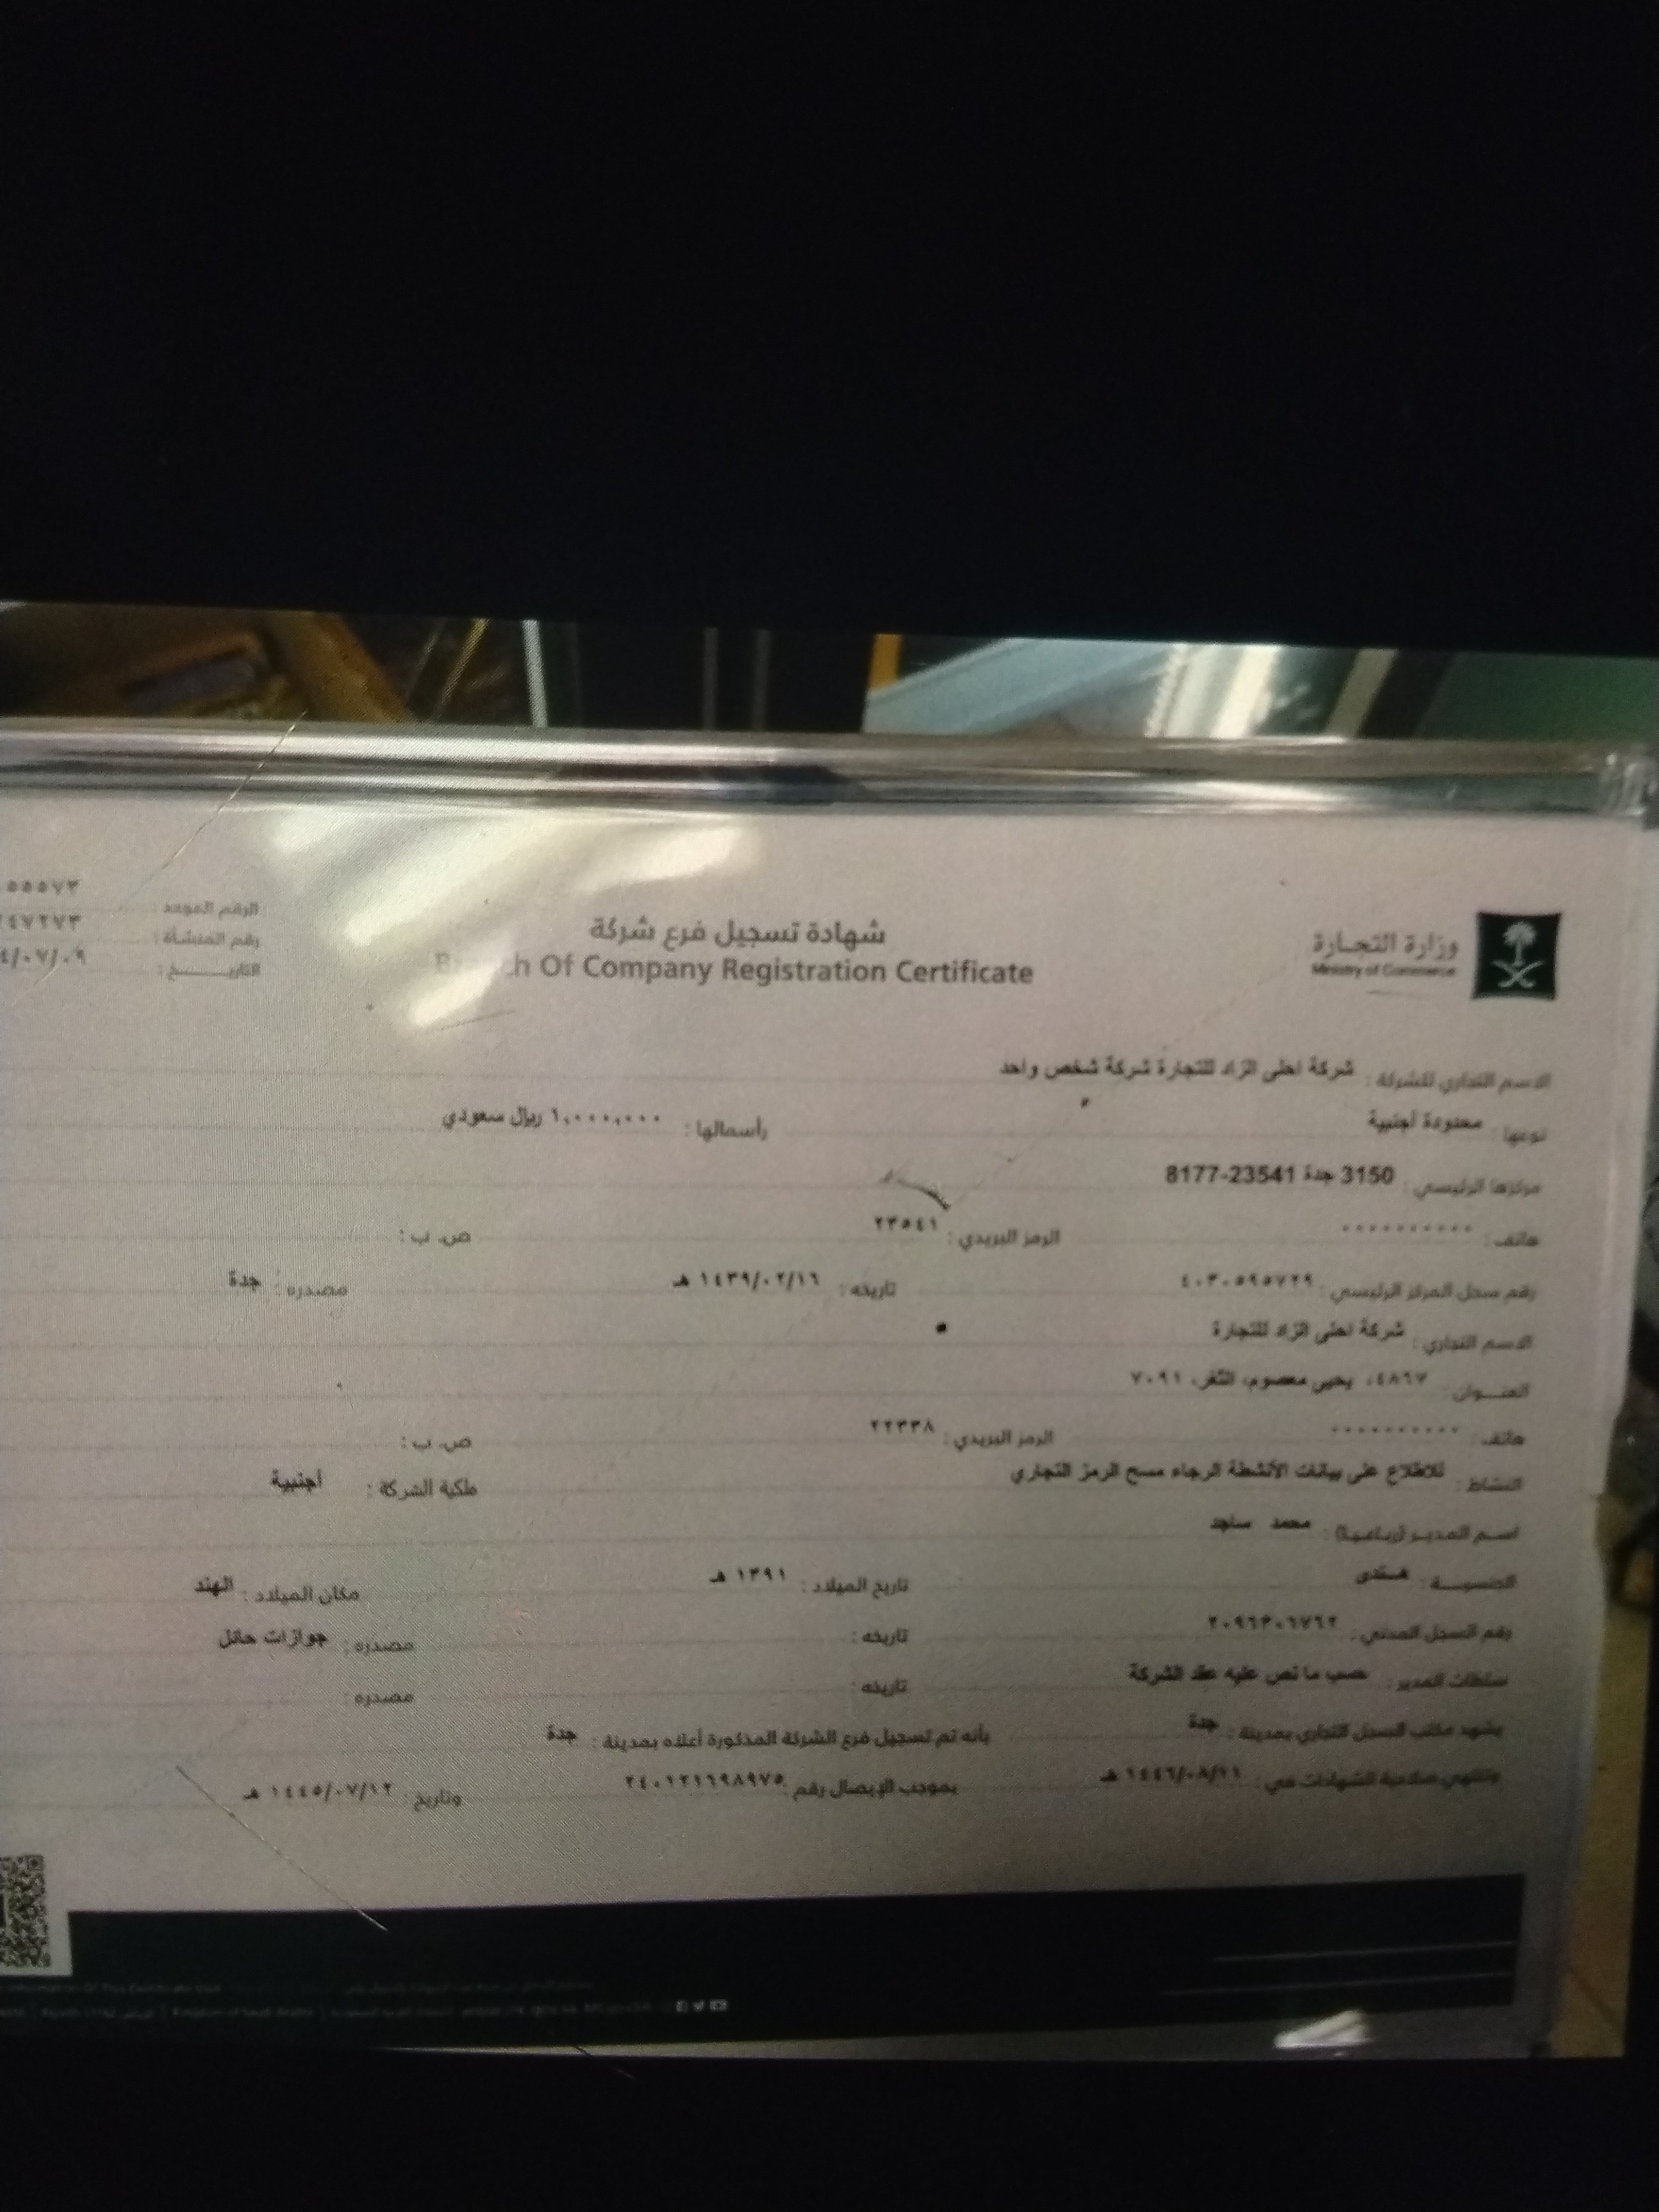 وزارة التجارة
Ministry of Commerce
شهادة تسجيل فرع شركة
Of Company Registration Certificate
الرقم الموحد : ٥٥٥٧٣
رقم المنشأة : ٤٧٢٧٣
التاريخ : /٠٧/٠٩
الاسم التجاري للشركة : شركة احلى الزاد للتجارة شركة شخص واحد
نوعها : محدودة أجنبية رأسمالها : ١,٠٠٠,٠٠٠ ريال سعودي
مركزها الرئيسي : 3150 جدة 23541-8177
هاتف : ٠٠٠٠٠٠٠٠٠٠ الرمز البريدي : ٢٣٥٤١ ص. ب :
رقم سجل المركز الرئيسي : ٤٠٣٠٥٩٥٧٢٩ تاريخه : ١٤٣٩/٠٢/١٦ هـ مصدره : جدة
الاسم التجاري : شركة احلى الزاد للتجارة
العنوان : ٤٨٦٧، يحيى معصوم، الثغر، ٧٠٩١
هاتف : ٠٠٠٠٠٠٠٠٠٠ الرمز البريدي : ٢٢٣٣٨ ص. ب :
النشاط : للاطلاع على بيانات الأنشطة الرجاء مسح الرمز التجاري ملكية الشركة : أجنبية
اسم المدير (رباعيا) : محمد ساجد
الجنسية : هندى تاريخ الميلاد : ١٣٩١ هـ مكان الميلاد : الهند
رقم السجل المدني : ٢٠٩٦٣٠٦٧٦٢ تاريخه : مصدره : جوازات حائل
سلطات المدير : حسب ما نص عليه عقد الشركة تاريخه : مصدره :
يشهد مكتب السجل التجاري بمدينة : جدة بأنه تم تسجيل فرع الشركة المذكورة أعلاه بمدينة : جدة
وتنتهي صلاحية الشهادات في : هـ بموجب الإيصال رقم : ٢٤٠١٢١٦٩٨٩٧٥ وتاريخ : ١٤٤٥/٠٧/١٢ هـ